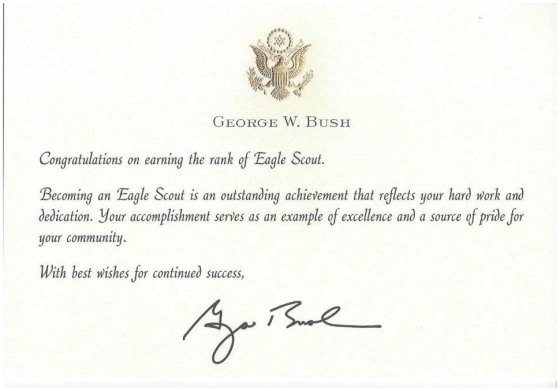 GEORGE W. BUSH
Congratulations on earning the rank of Eagle Scout.
Becoming an Eagle Scout is an outstanding achievement that reflects your hard work and
dedication. Your accomplishment serves as an example of excellence and a source of pride for
your community.
With best wishes for continued success,